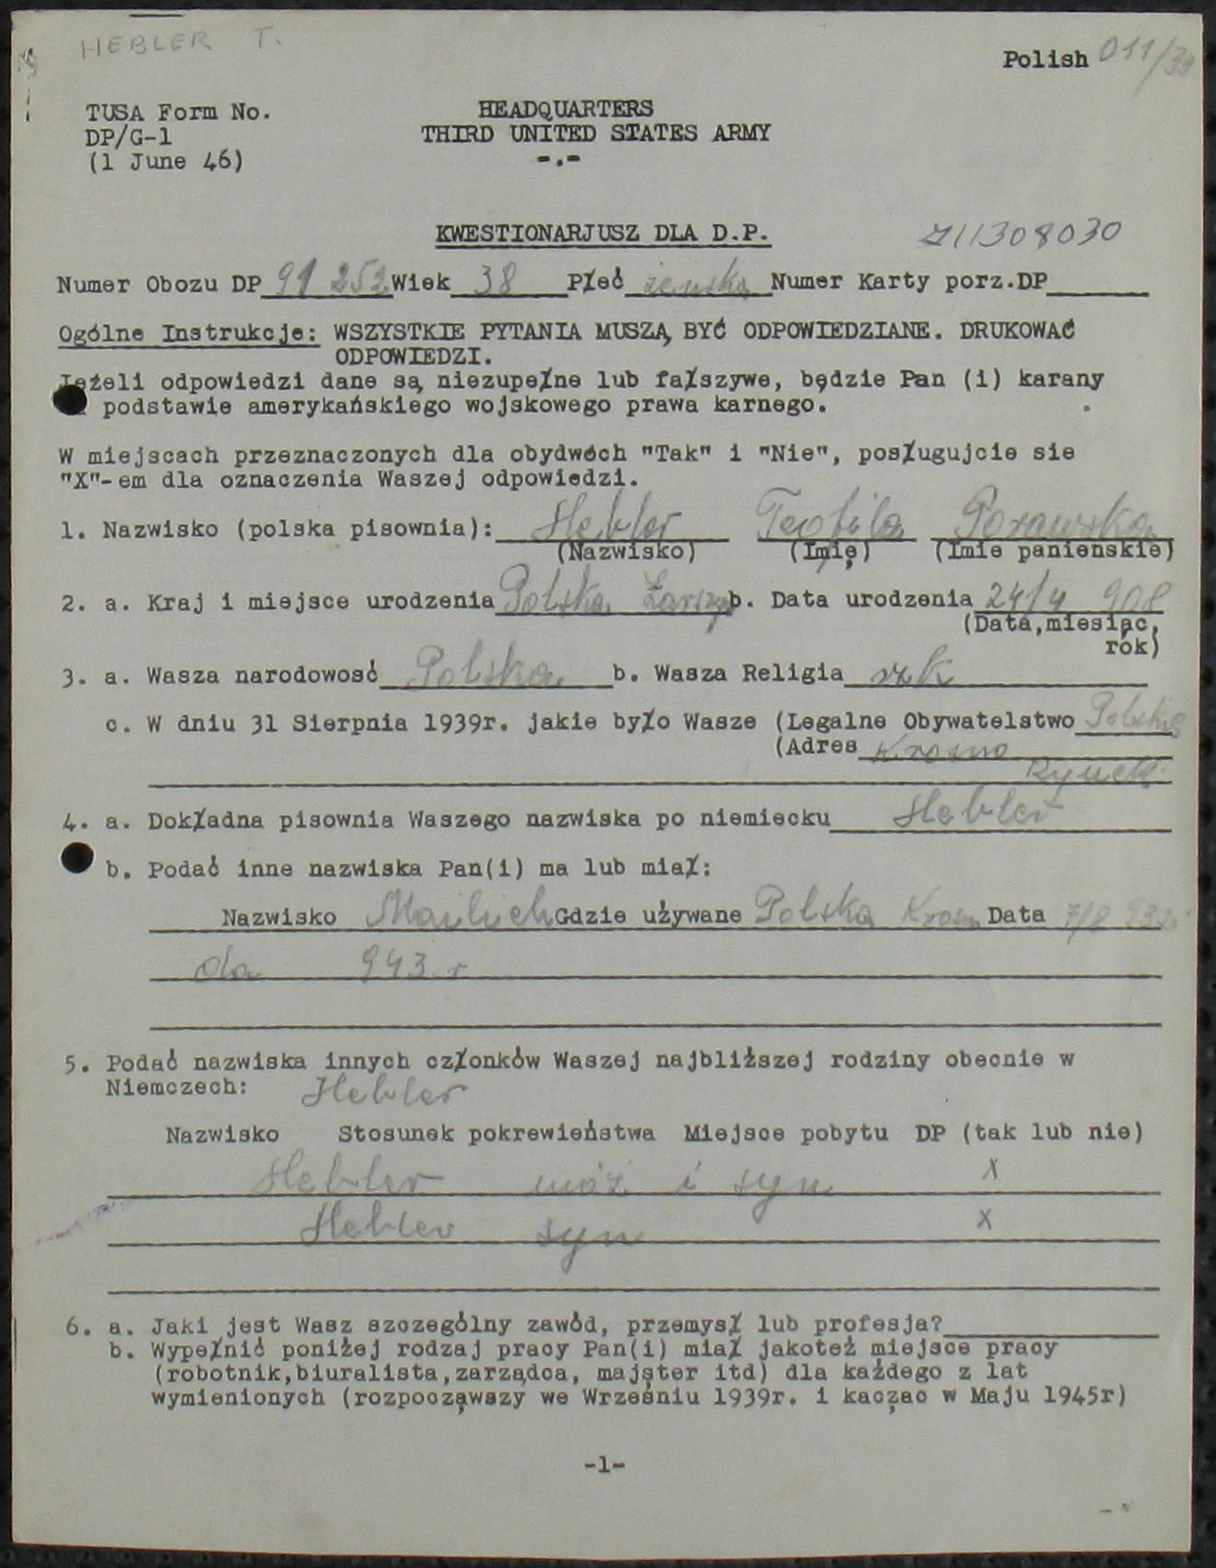 HEBLER T.
Polish 011/39
TUSA Form No.
DP/G-1
(1 June 46)
HEADQUARTERS
THIRD UNITED STATES ARMY
-.-
KWESTIONARJUSZ DLA D.P.
711308030
Numer Obozu DP 91 252 Wiek 38 Płeć żeńska Numer Karty porz.DP
Ogólne Instrukcje: WSZYSTKIE PYTANIA MUSZĄ BYĆ ODPOWIEDZIANE. DRUKOWAĆ
ODPOWIEDZI.
Jeżeli odpowiedzi dane są niezupełne lub fałszywe, będzie Pan (i) karany
podstawie amerykańskiego wojskowego prawa karnego.
W miejscach przeznaczonych dla obydwóch "Tak" i "Nie", posługujcie sie
"X"-em dla oznaczenia Waszej odpowiedzi.
1. Nazwisko (polska pisownia): Hebler Teofila Porawska
(Nazwisko) (Imię) (Imie panienskie)
2. a. Kraj i miejsce urodzenia Polska b. Data urodzenia 24/4 908
(Data,miesiąc,
rok)
3. a. Wasza narodowosć Polska b. Wasza Religia rzk
c. W dniu 31 Sierpnia 1939r. jakie było Wasze (Legalne Obywatelstwo Polskie
(Adres Krosno
Rynek
4. a. Dokładna pisownia Waszego nazwiska po niemiecku Hebler
b. Podać inne nazwiska Pan(i) ma lub miał:
Nazwisko Gdzie używane Polska Krosn Data 7/8 932
da 943 r
5. Podać nazwiska innych członków Waszej najbliższej rodziny obecnie w
Niemczech: Hebler
Nazwisko Stosunek pokrewieństwa Miejsce pobytu DP (tak lub nie)
Hebler mąż i syn X
Hebler syn X
6. a. Jaki jest Wasz szczególny zawód, przemysł lub profesja?
b. Wypełnić poniżej rodzaj pracy Pan(i) miał jakoteż miejsce pracy
(robotnik,biuralista,zarządca, majster itd) dla każdego z lat
wymienionych (rozpocząwszy we Wrześniu 1939r. i kacząc w Maju 1945r)
-1-